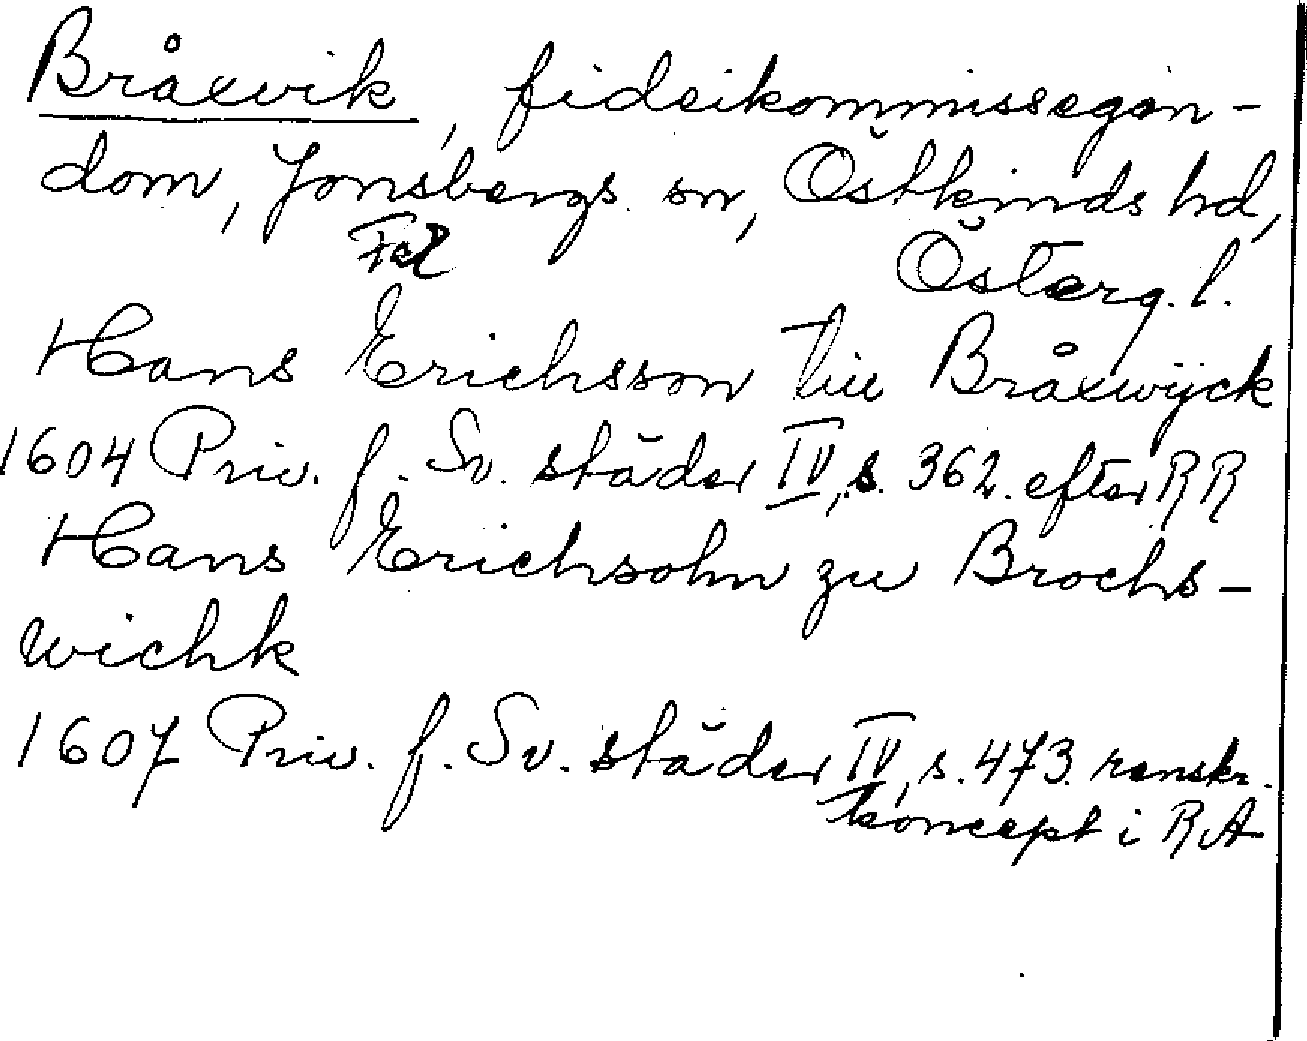 Bråxvik, fideikommissegen-
dom, Jonsbergs sn, Östkinds hd,
Österg. l.
Hans Erichsson till Bråxwijck
1604 Priv. f. Sv. städer IV, s. 362. efter RR
Hans Erichsohn zu Brochs-
wichk
1607 Priv. f. Sv. städer IV, s. 473. renskr.
koncept i RA